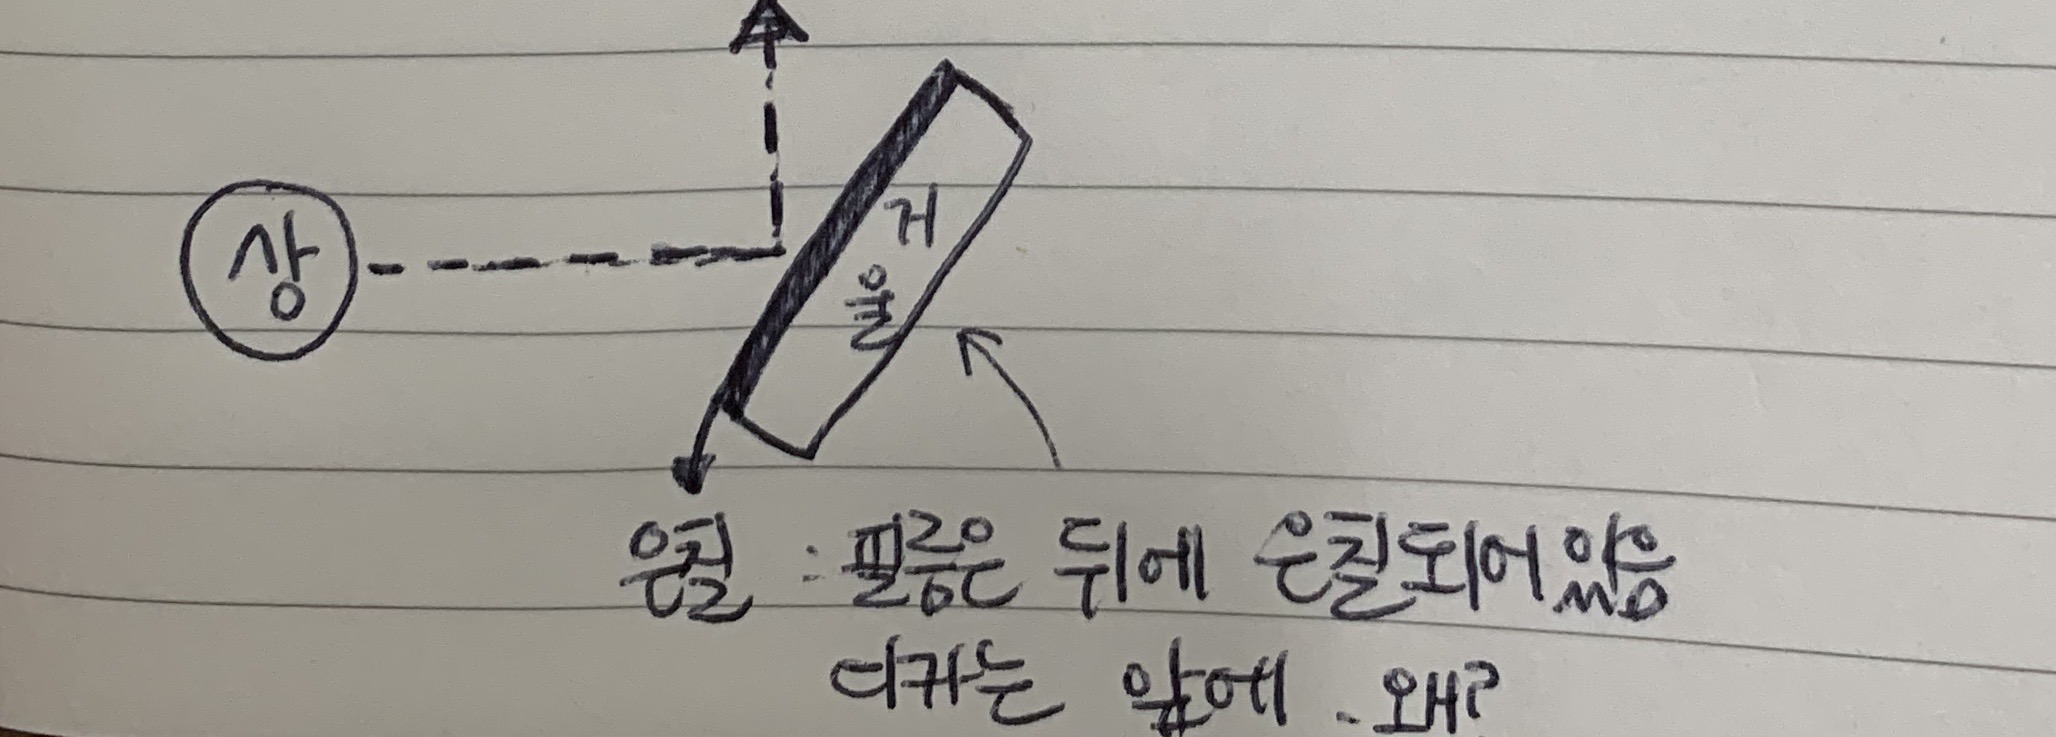 상
거
울
은칠 : 필름은 뒤에 은칠되어있음
디카는 앞에. 왜?